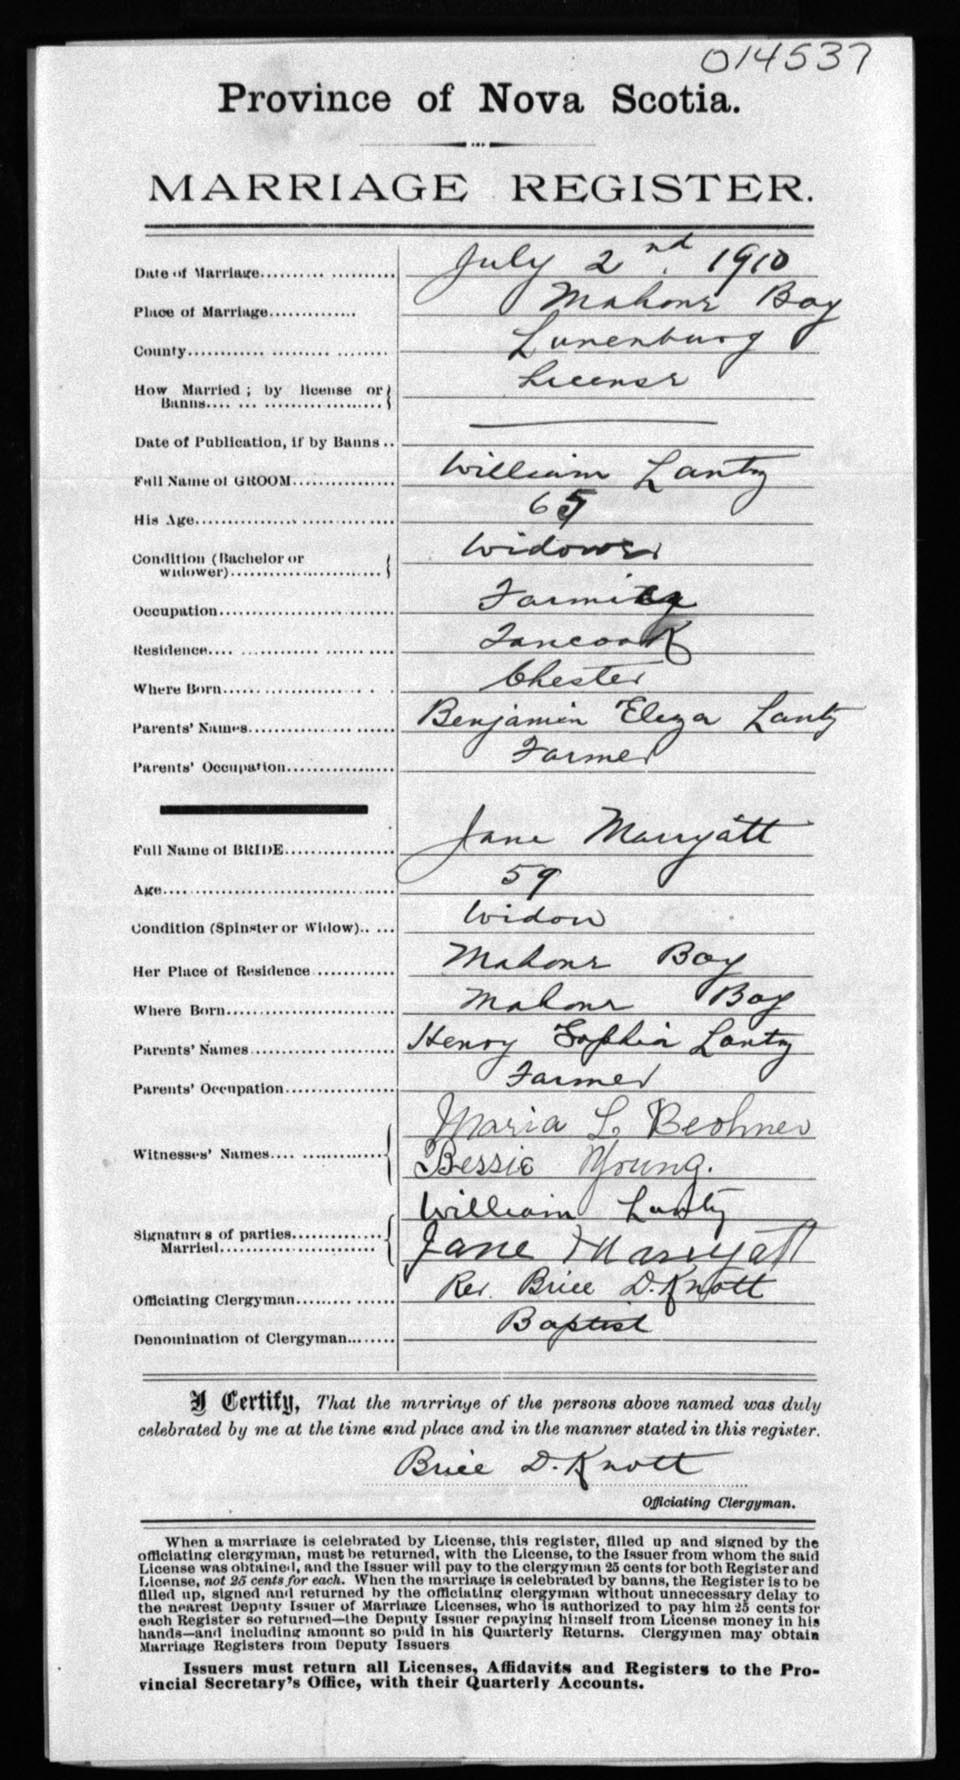 014537
Province of Nova Scotia.
MARRIAGE REGISTER.
Date of Marriage.................... July 2nd. 1910
Place of Marriage.............. Mahone Bay
County.............................. Lunenburg
How Married; by license or Banns.................... License
Date of Publication, if by Banns ..
Full Name of GROOM................ William Lantz
His Age.............................. 65
Condition (Bachelor or widower)........................ Widower
Occupation........................... Farming
Residence.......................... Tancook
Where Born........................ Chester
Parents' Names...................... Benjamin Eliza Lantz
Parents' Occupation................. Farmer
Full Name of BRIDE................. Jane Marryatt
Age.................................... 59
Condition (Spinster or Widow)..... Widow
Her Place of Residence ............ Mahone Bay
Where Born......................... Mahone Bay
Parents' Names..................... Henry Sophia Lantz
Parents' Occupation................ Farmer
Witnesses' Names.................. Maria L. Beohner
Bessie Young.
Signatures of parties Married........................ William Lantz
Jane Marryatt
Officiating Clergyman............... Rev. Brice D. Knott
Denomination of Clergyman........ Baptist
I Certify, That the marriage of the persons above named was duly
celebrated by me at the time and place and in the manner stated in this register.
Brice D. Knott
Officiating Clergyman.
When a marriage is celebrated by License, this register, filled up and signed by the
officiating clergyman, must be returned, with the License, to the Issuer from whom the said
License was obtained, and the Issuer will pay to the clergyman 25 cents for both Register and
License, not 25 cents for each. When the marriage is celebrated by banns, the Register is to be
filled up, signed and returned by the officiating clergyman without unnecessary delay to
the nearest Deputy Issuer of Marriage Licenses, who is authorized to pay him 25 cents for
each Register so returned—the Deputy Issuer repaying himself from License money in his
hands—and including amount so paid in his Quarterly Returns. Clergymen may obtain
Marriage Registers from Deputy Issuers
Issuers must return all Licenses, Affidavits and Registers to the Pro-
vincial Secretary's Office, with their Quarterly Accounts.